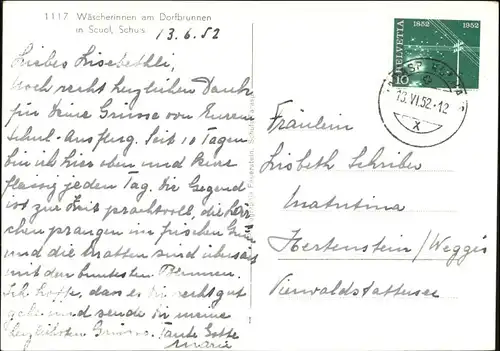 1117 Wäscherinnen am Dorfbrunnen
in Scuol, Schuls.
13.6.52
Liebes Lisebethli,
Noch recht herzlichen Dank
für Deine Grüsse von Eurem
Schul-Ausflug. Seit 10 Tagen
bin ich hier oben und
fleissig jeden Tag. Die Gegend
ist zur Zeit prachtvoll, die Lär-
chen prangen im frischen Grün
und die Matten sind übersät
mit den buntesten Blumen.
Ich hoffe, dass es Dir recht gut
geht und sende Dir meine
herzlichsten Grüsse. Tante Gotte
Marie
HELVETIA
1852 1952
10
13.VI.52-12
X
Fräulein
Lisbeth Schriber
Matutina
Hertenstein/Weggis
Vierwaldstättersee